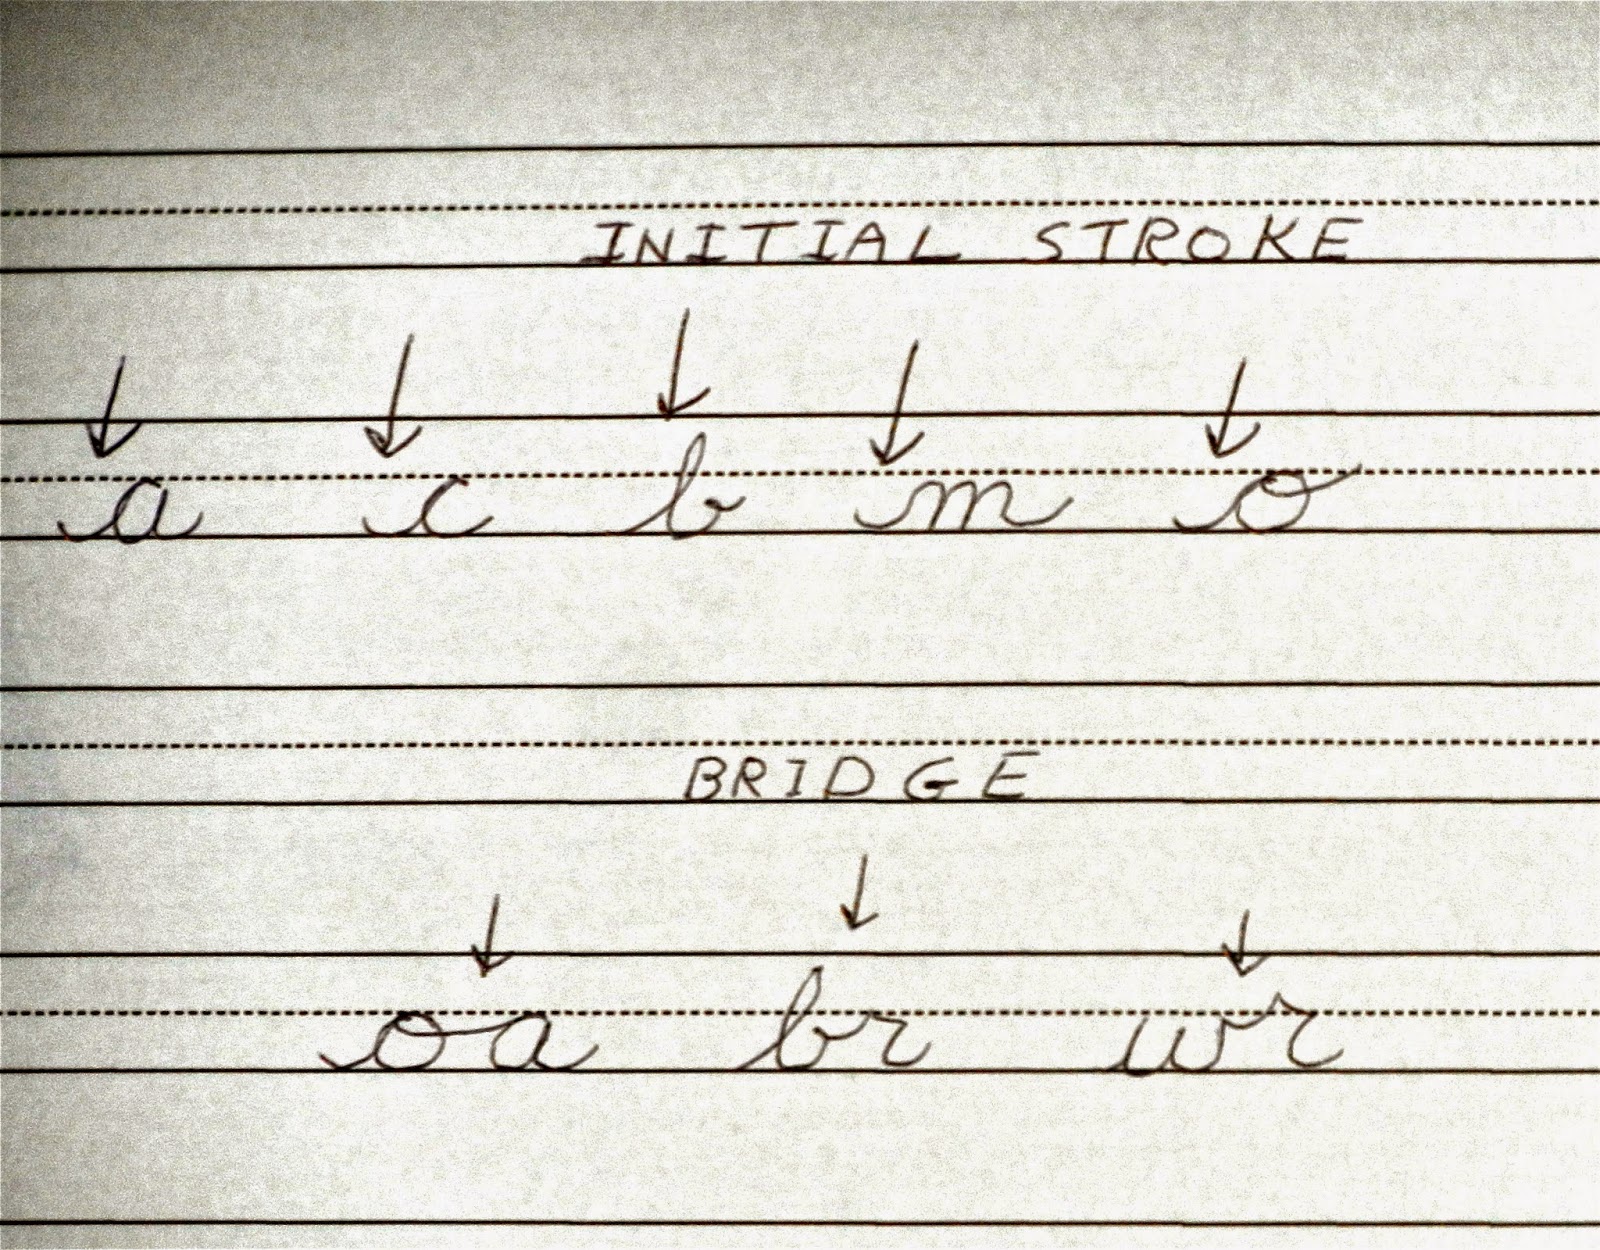 INITIAL STROKE
a c b m o
BRIDGE
oa br wr